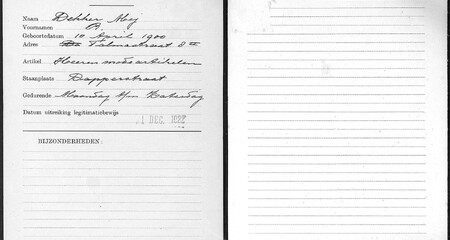 Naam Dekker Mej
Voornamen P.
Geboortedatum 10 April 1900
Adres Talmastraat 8 III
Artikel Heeren mode artikelen
Staanplaats Dapperstraat
Gedurende Maandag t/m Zaterdag
Datum uitreiking legitimatiebewijs 1 DEC. 1922
BIJZONDERHEDEN: